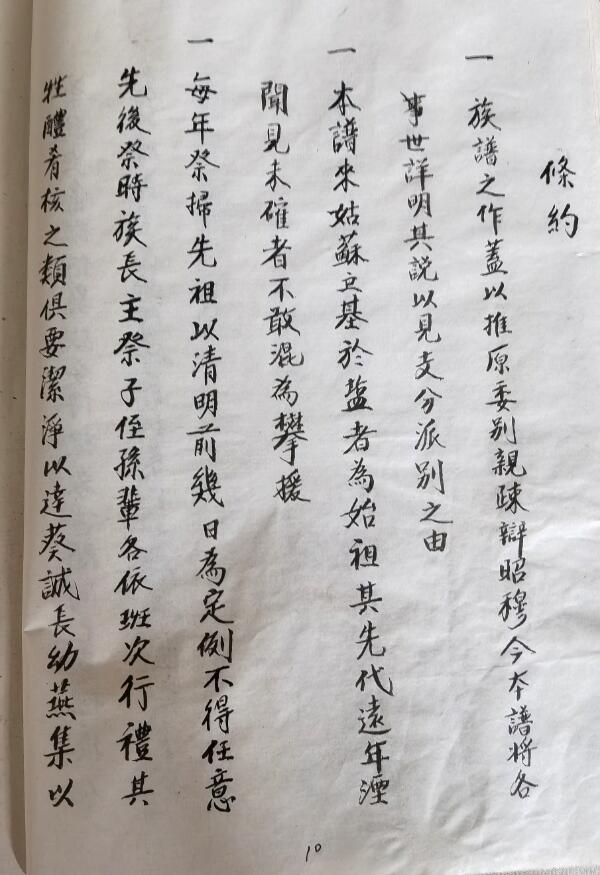 條約
一 族譜之作蓋以推原委別親疎辯昭穆今本譜將各
事世詳明其説以見支分派別之由
一 本譜來姑蘇立基於盐者為始祖其先代遠年湮
聞見未確者不敢混為攀援
一 每年祭掃先祖以清明前幾日為定例不得任意
先後祭時族長主祭子侄孫輩各依班次行禮其
牲醴肴核之類俱要潔淨以達葵誠長幼燕集以
10